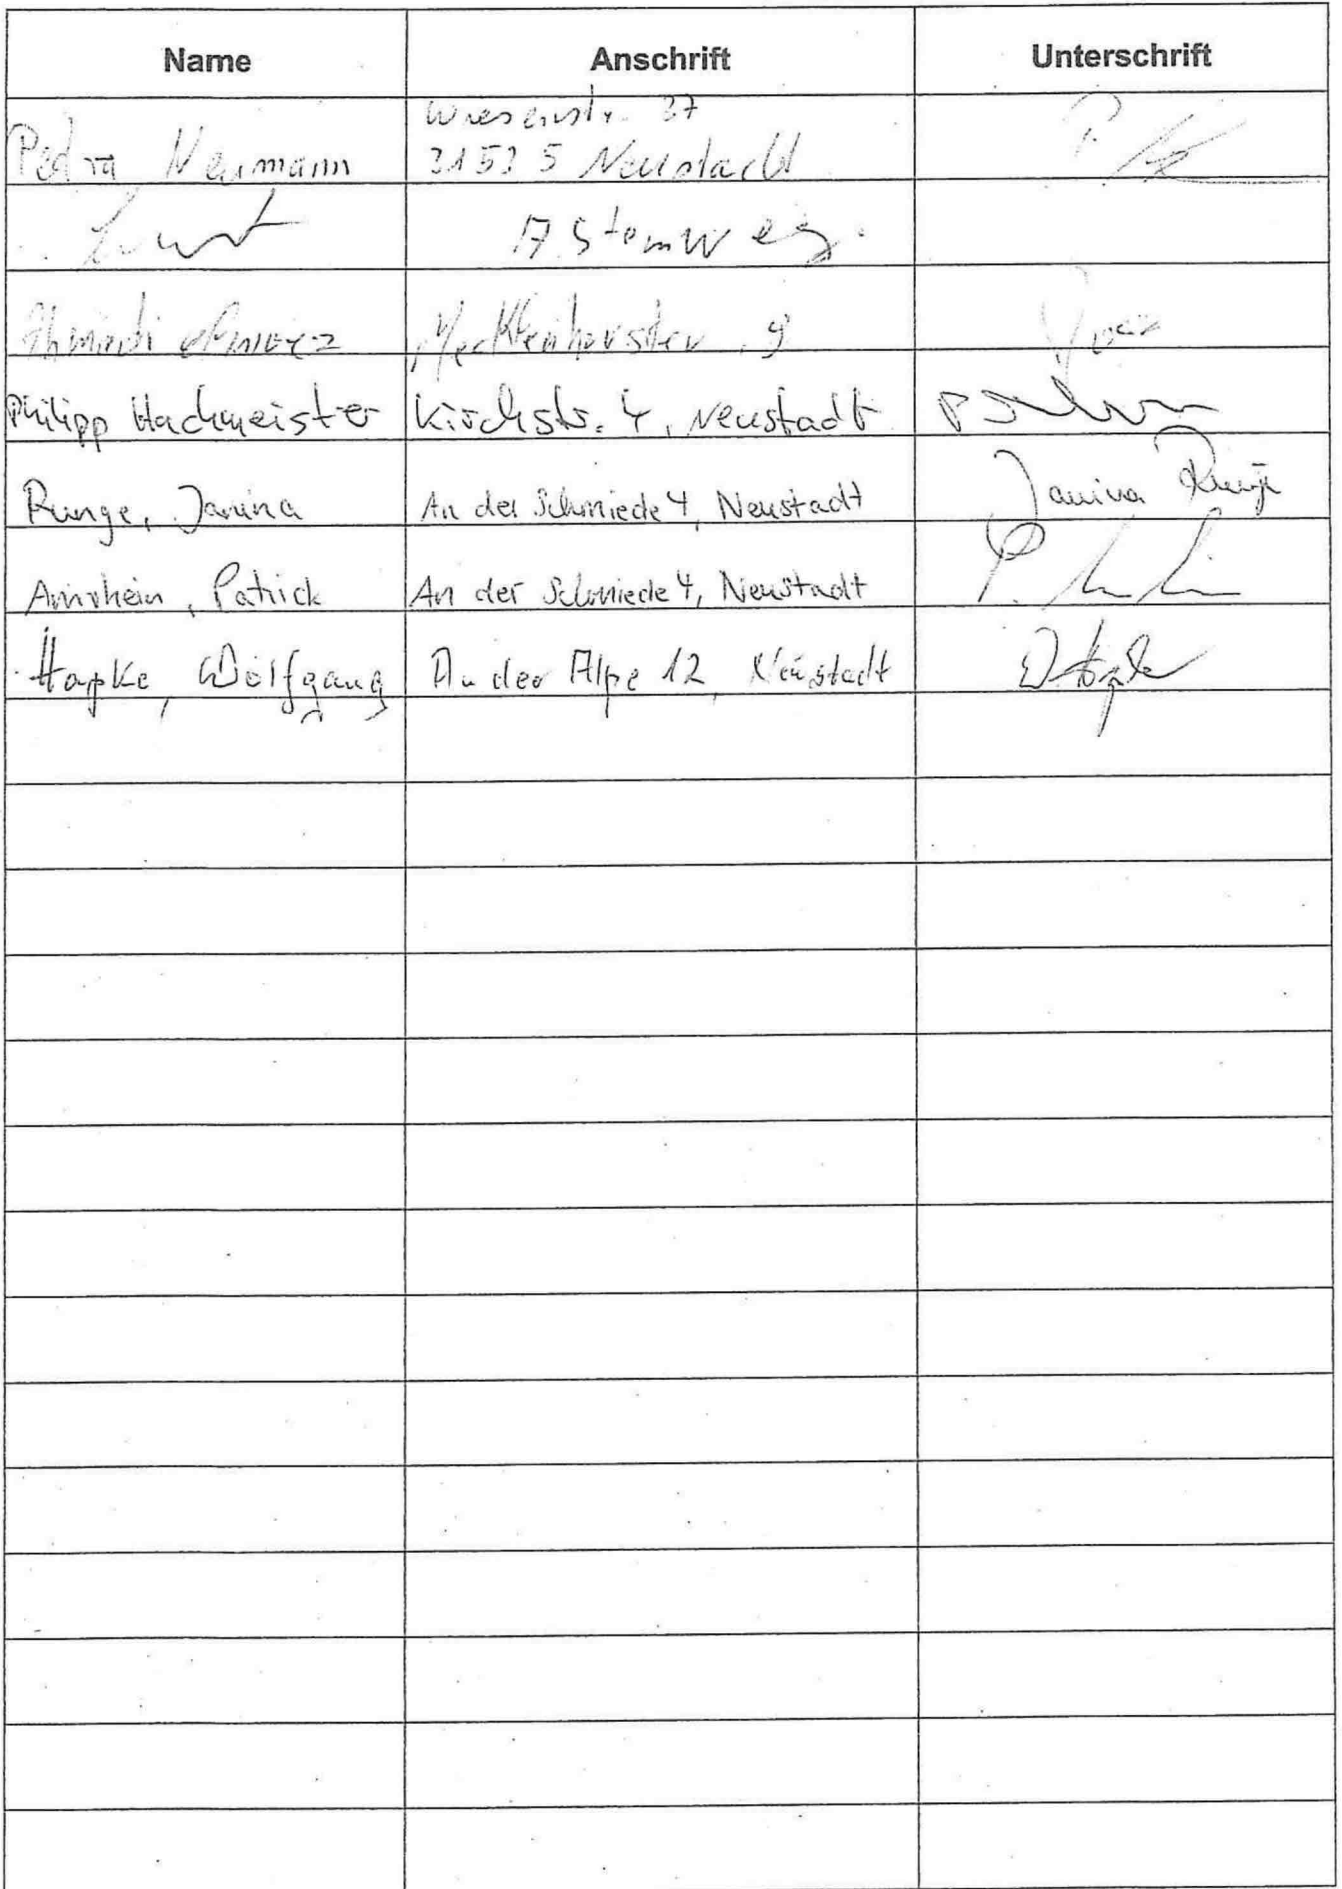 Name Anschrift Unterschrift
Wiesenstr. 37
Petra Neumann 31535 Neustadt P.
17 Stemweg.
9
Philipp Hachmeister Kirchstr. 4, Neustadt
Runge, Janina An der Schmiede 4, Neustadt Janina Runge
Amrhein, Patrick An der Schmiede 4, Neustadt P.
Hapke, Wolfgang An der Alpe 12, Neustadt W. Hapke